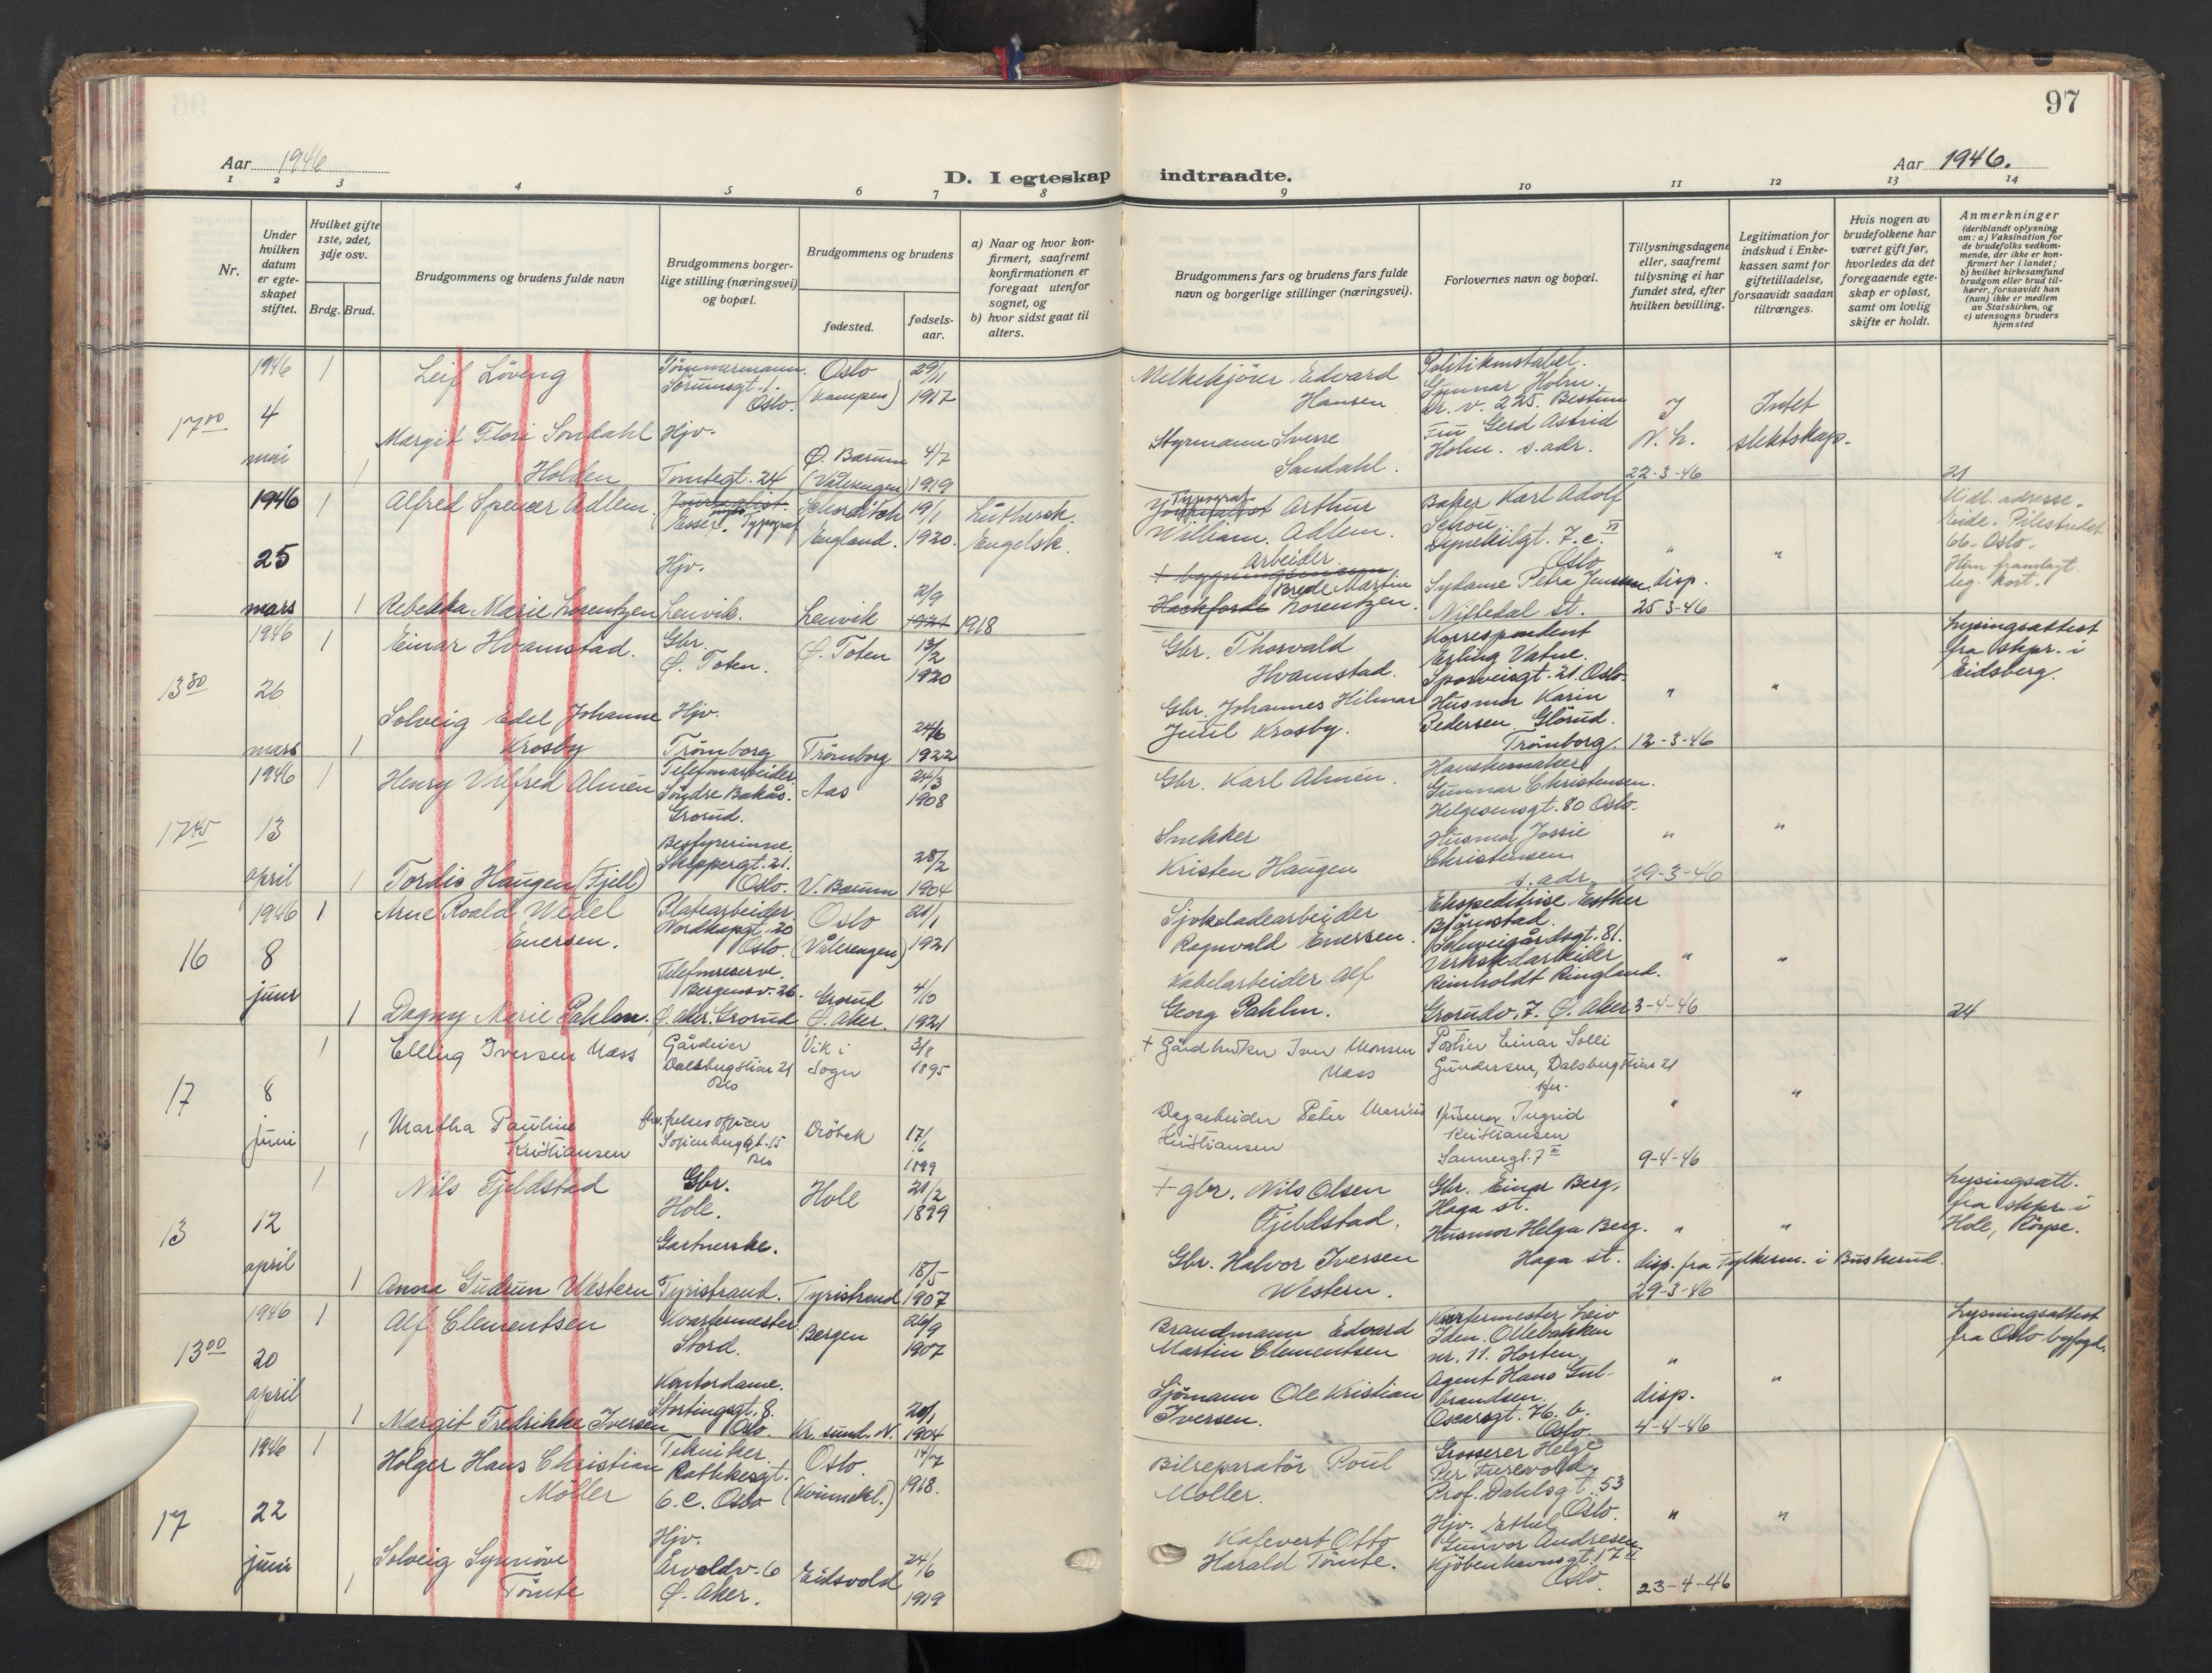 97
Aar 1946
D. I egteskap indtraadte.
Aar 1946.
1 2 3 4 5 6 7 8 9 10 11 12 13 14
Nr.
Under hvilken datum er egteskapet stiftet.
Hvilket gifte 1ste, 2det, 3dje osv.
Brdg. Brud.
Brudgommens og brudens fulde navn
Brudgommens borgerlige stilling (næringsvei) og bopæl.
Brudgommens og brudens
fødested.
fødselsaar.
a) Naar og hvor konfirmert, saafremt konfirmationen er foregaat utenfor sognet, og
b) hvor sidst gaat til alters.
Brudgommens fars og brudens fars fulde navn og borgerlige stillinger (næringsvei).
Forlovernes navn og bopæl.
Tillysningsdagene eller, saafremt tillysning ei har fundet sted, efter hvilken bevilling.
Legitimation for indskud i Enkekassen samt for giftetilladelse, forsaavidt saadan tiltrænges.
Hvis nogen av brudefolkene har været gift før, hvorledes da det foregaaende egteskap er opløst, samt om lovlig skifte er holdt.
Anmerkninger
(deriblandt oplysning om: a) Vaksination for de brudefolks vedkommende, der ikke er konfirmert her i landet;
b) hvilket kirkesamfund brudgom eller brud tilhører, forsaavidt han (hun) ikke er medlem av Statskirken, og
c) utensogns bruders hjemsted
17 00
1946
4
mai
1
Leif Löveng
Tömmermann.
Torumsgt. 1.
Oslo.
Oslo
(Kampen)
29/11
1917
Melkekjörer Edvard
Hansen
Politikonstabel.
Gunnar Holm.
Dr. v. 225. Bestum
J
N. h.
22-3-46
Intet
slektskap.
1
Margit Flori Sondahl
Holden
Hjv.
Tomtegt. 24
Ö. Bærum
(Vålerengen)
4/7
1919
Styrmann Sverre
Sandahl.
Fru Gerd Astrid
Holm. s. adr.
21
1946
25
mars
1
Alfred Spencer Adlem.
Journalist.
Typograf
England.
19/1
1920.
Luthersk.
Engelsk.
Typograf
Arthur
William. Adlem.
Baker Karl Adolf
Schou
Dyvekilgt. 7. c. VI
Oslo
"
"
Midl. adresse.
66. Oslo.
leg. kort.
1
Rebekka Marie Lorentzen
Hjv.
Lenvik.
Lenvik
2/9
1921
1918
+ arbeider
Brede Martin
Lorentzen.
Sydame Petra Jensen.
Nittedal st.
disp.
25 3-46
13 30
1946
26
mars
1
Einar Hvamstad.
Gbr.
Ö. Toten.
Ö. Toten
13/2
1920
Gbr. Thorvald
Hvamstad.
Korrespondent
Erling Vatne.
Sporveisgt. 21. Oslo.
"
"
Lysingsattest
fra skpr. i
Eidsberg.
1
Solveig Edel Johanne
Krosby
Hjv.
Trömborg
Trömborg
24/6
1922
Gbr. Johannes Hilmar
Juul Krosby.
Husmor Karin
Pedersen Glörud.
Trömborg.
12-3-46
17 45
1946
13
april
1
Henry Vilfred Almén
Telefonarbeider
Söndre Bakås.
Grorud.
Aas
24/3
1908
Gbr. Karl Almén.
Hanskemaker
Gunnar Christensen.
Helgesensgt. 80 Oslo.
"
"
1
Tordis Haugen (Fjell)
Bestyrerinne.
Skippergt. 21.
Oslo.
V. Bærum
28/2
1904
Snekker
Kristen Haugen
Husmor Jossie
Christensen
s. adr.
29-3-46
16
1946
8
juni
1
Arne Roald Wedel
Enersen.
Platearbeider
Nordkapgt. 20
Oslo.
Oslo
(Vålerengen)
21/1
1921
Sjokoladearbeider
Ragnvald Enersen.
Ekspeditrise Esther
Björnstad.
Schweigårdsgt. 81.
"
"
1
Dagny Marie Pahlm.
Telefonreserve.
Bergensv. 26.
Ö. Aker. Grorud
Grorud
Ö. Aker.
4/10
1921
Kabelarbeider Alf
Georg Pahlm.
Verkstedarbeider
Reinholdt Ringland.
Grorudv. 7. Ö. Aker
3-4-46
24
17
8
juni
1
Elling Iversen Næss
Gårdeier
Dalsbergstien 21
Oslo
Vik i
Sogn
3/8
1895
+ Gårdbruker Iver Monsen
Næss
Postier Einar Solli
Gundersen, Dalsbergstien 21
"
"
1
Martha Pauline
Kristiansen
Sofienberggt. 15
Oslo
Dröbak
17/6
1899
Dagarbeider Peter Marius
Kristiansen
Husmor Ingrid
Kristiansen
Sannergt. 7 III
9-4-46
13
12
april
1
Nils Fjeldstad
Gbr.
Hole.
Hole
21/2
1899
+ gbr. Nils Olsen
Fjeldstad.
Gbr. Einar Berg,
Haga st.
Husmor Helga Berg.
Haga st.
"
"
disp. fra Fylkesm. i Buskerud.
29-3-46
Lysingsatt.
fra skpr. i
Hole, Röyse.
1
Anna Gudrun Western
Gartnerske.
Tyristrand.
Tyristrand
18/5
1907
Gbr. Halvor Iversen
Western.
13 00
1946
20
april
1
Alf Clementsen
Kvartermester.
Stord.
Bergen
26/9
1907
Brandmann Edvard
Martin Clementsen
Kvartermester Leiv
Iden. Ollebakken
nr. 11. Horten.
"
"
Lysningsattest
fra Oslo byfogd.
1
Margit Fredrikke Iversen
Kontordame.
Stortingsgt. 8.
Oslo.
Kr. sund. N.
20/1
1904
Sjömann Ole Kristian
Iversen.
Agent Hans Gulbrandsen.
Oscarsgt. 76. b.
Oslo.
disp.
4-4-46
17
1946
22
juni
1
Holger Hans Christian
Möller
Tekniker.
Rathkesgt.
6. c. Oslo
Oslo.
14/7
1918.
Bilreparatör Poul
Möller.
Grosserer Helge
Per Furevold.
Prof. Dahlsgt. 53
Oslo.
"
"
1
Solveig Synnöve
Tömte
Hjv.
Årvoldv. 6
Ö. Aker.
Eidsvold
24/6
1919
Otto
Harald Tömte.
Hjv. Ethel
Gunvor Andresen
Kjöbenhavnsgt. 17 II
Oslo.
23-4-46